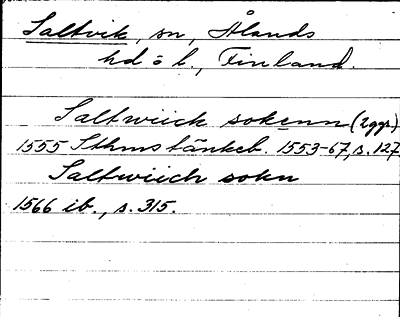 Saltvik, sn, Ålands
hd o l., Finland.
Saltwiick sokenn (2 ggr)
1555 Sthms tänkeb. 1553-67, s. 127
Saltwiich sokn
1566 ib., s. 315.